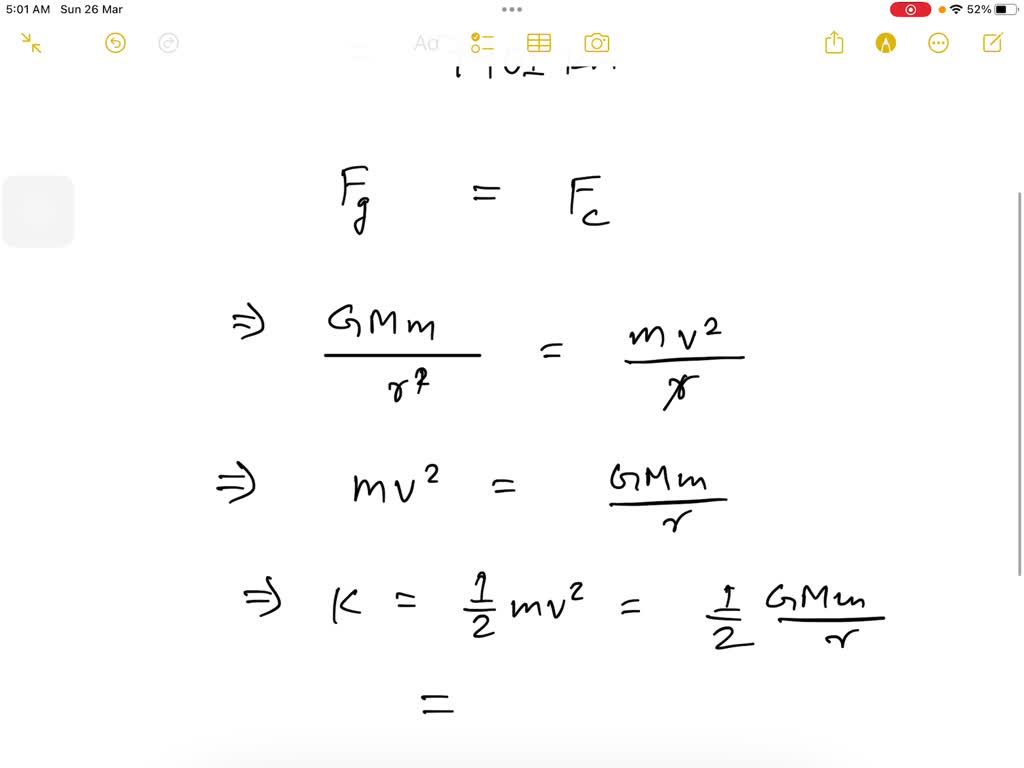 5:01 AM Sun 26 Mar 52%
Aa
F_g = F_c
⇒ GMm/r² = mv²/r
⇒ mv² = GMm/r
⇒ K = 1/2 mv² = 1/2 GMm/r
=